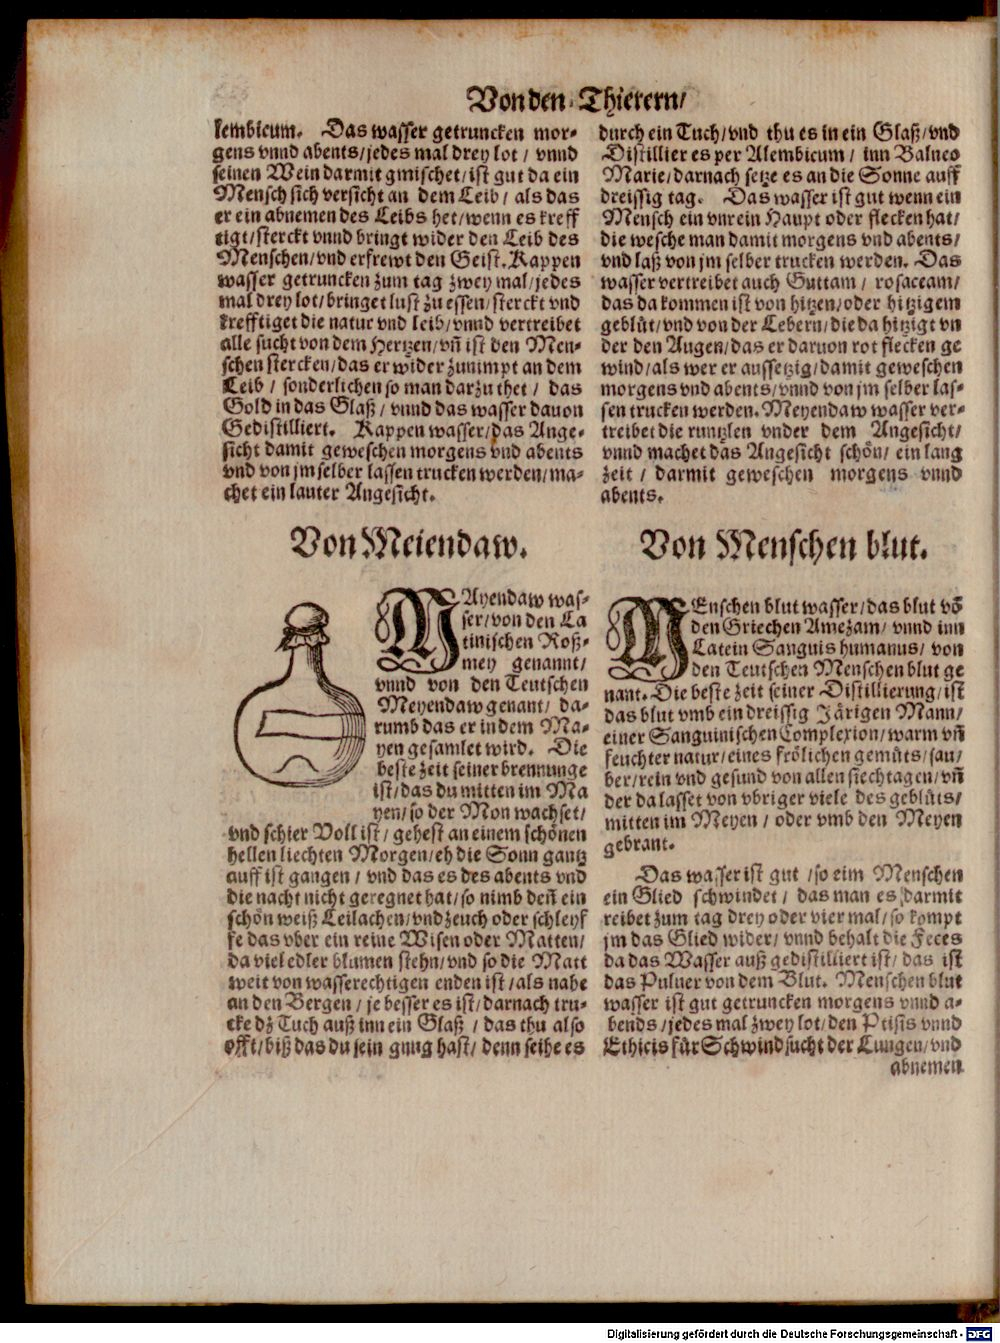 Von den Thierern/
lembicum. Das wasser getruncken mor-
gens vnnd abents/jedes mal drey lot / vnnd
seinen Wein darmit gmischet/ist gut da ein
Mensch sich versicht an dem Leib / als das
er ein abnemen des Leibs het/wenn es kreff
tigt/sterckt vnnd bringt wider den Leib des
Menschen/vnd erfrewt den Geist. Kappen
wasser getruncken zum tag zwey mal/jedes
mal drey lot/bringet lust zu essen/sterckt vnd
krefftiget die natur vnd leib/vnnd vertreibet
alle sucht von dem Hertzen/vñ ist den Men-
schen stercken/das er wider zunimpt an dem
Leib / sonderlichen so man darzu thet / das
Gold in das Glaß / vnnd das wasser dauon
Gedistilliert. Kappen wasser/das Ange-
sicht damit geweschen morgens vnd abents
vnd von jm selber lassen trucken werden/ma-
chet ein lauter Angesicht.
Von Meiendaw.
MAyendaw was-
ser/von den La
tinischen Roß-
mey genannt/
vnnd von den Teutschen
Meyendaw genant/ da-
rumb das er in dem Ma-
yen gesamlet wird. Die
beste zeit seiner brennunge
ist/das du mitten im Ma
yen/so der Mon wachset/
vnd schier Voll ist/ gehest an einem schönen
hellen liechten Morgen/eh die Sonn gantz
auff ist gangen / vnd das es des abents vnd
die nacht nicht geregnet hat/so nimb deñ ein
schön weiß Leilachen/vnd zeuch oder schleyf
fe das vber ein reine Wisen oder Matten/
da viel edler blumen stehn/vnd so die Matt
weit von wasserechtigen enden ist/als nahe
an den Bergen / je besser es ist/darnach tru-
cke dz Tuch auß inn ein Glaß / das thu also
offt/biß das du sein gnug hast/ denn seihe es
durch ein Tuch/vnd thu es in ein Glaß/vnd
Distillier es per Alembicum / inn Balneo
Marie/darnach setze es an die Sonne auff
dreissig tag. Das wasser ist gut wenn ein
Mensch ein vnrein Haupt oder flecken hat/
die wesche man damit morgens vnd abents/
vnd laß von jm selber trucken werden. Das
wasser vertreibet auch Guttam / rosaceam/
das da kommen ist von hitzen/oder hitzigem
geblüt/vnd von der Lebern/die da hitzigt vn
der den Augen/das er daruon rot flecken ge
wind/als wer er aussetzig/damit geweschen
morgens vnd abents/vnnd von jm selber las-
sen trucken werden. Meyendaw wasser ver-
treibet die runtzlen vnder dem Angesicht/
vnnd machet das Angesicht schön/ ein lang
zeit / darmit geweschen morgens vnnd
abents.
Von Menschen blut.
MEnschen blut wasser/das blut võ
den Griechen Amezam/ vnnd inn
Latein Sanguis humanus/ von
den Teutschen Menschen blut ge
nant. Die beste zeit seiner Distillierung/ist
das blut vmb ein dreissig Järigen Mann/
einer Sanguinischen Complexion/warm vñ
feuchter natur/eines frölichen gemüts/sau/
ber/rein vnd gesund von allen siechtagen/vñ
der da lasset von vbriger viele des geblüts/
mitten im Meyen / oder vmb den Meyen
gebrant.
Das wasser ist gut /so eim Menschen
ein Glied schwindet / das man es darmit
reibet zum tag drey oder vier mal/so kompt
jm das Glied wider/ vnnd behalt die Feces
da das Wasser auß gedistilliert ist/das ist
das Puluer von dem Blut. Menschen blut
wasser ist gut getruncken morgens vnnd a-
bends /jedes mal zwey lot/den Ptisis vnnd
Ethicis für Schwindsucht der Lungen/vnd
abnemen
Digitalisierung gefördert durch die Deutsche Forschungsgemeinschaft - DFG